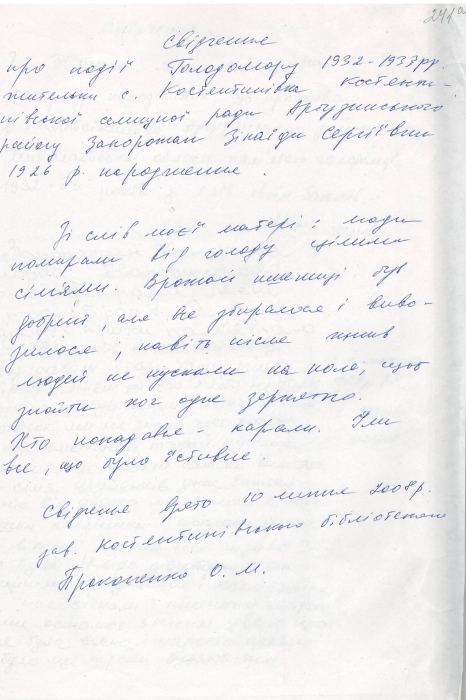 241а
Свідчення
про події Голодомору 1932-1933рр.
жительки с. Костянтинівка Костянти-
нівської селищної ради Арбузинського
району Запорожан Зінаїди Сергіївни
1926 р. народження.
Зі слів моєї матері: люди
помирали від голоду цілими
сім'ями. Врожай пшениці був
добрий, але все збиралося і виво-
зилося, навіть після жнив
людей не пускали на поле, щоб
знайти хоч одне зернятко.
Хто попадався - карали. Їли
все, що було їстивне.
Свідчення взято 10 липня 2008р.
зав. Костянтинівською бібліотекою
Прокопенко О. М.